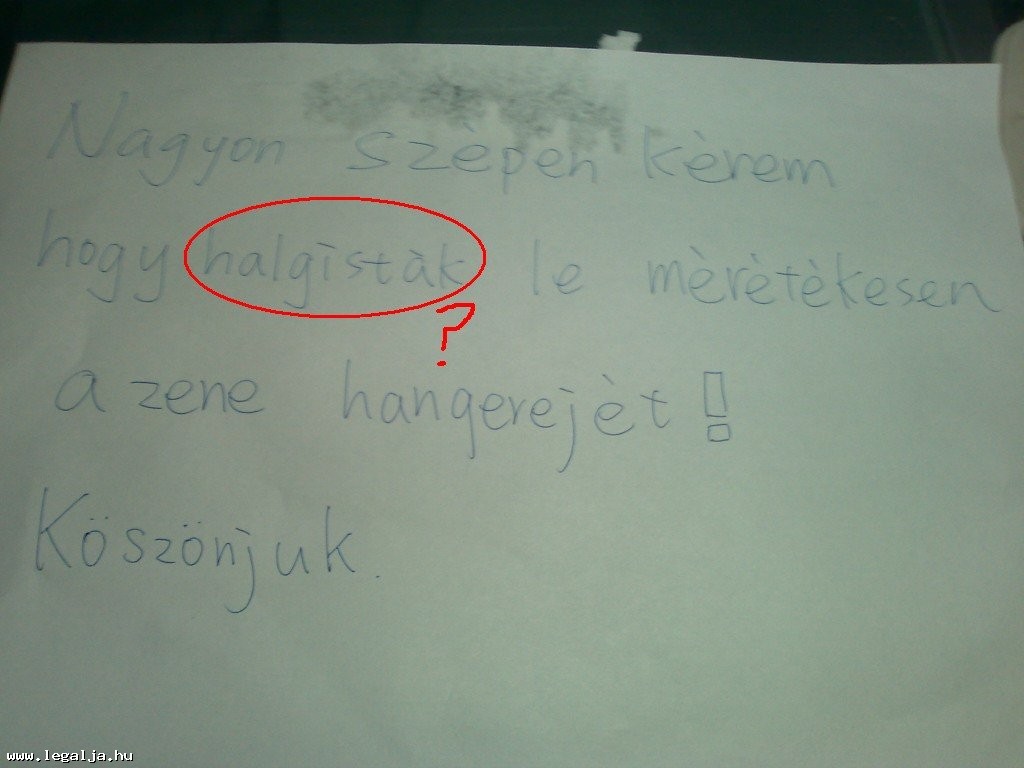 Nagyon szèpen kèrem
hogy halgistàk le mèrètèkesen
?
a zene hangerejèt!
Köszönjuk.
www.legalja.hu